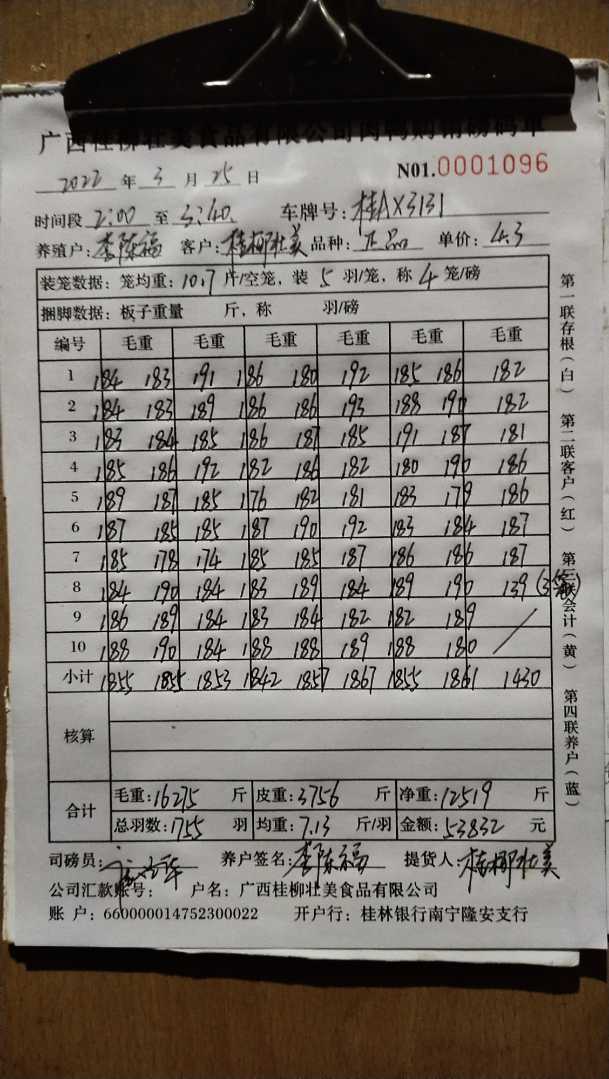 广西桂柳壮美食品有限公司肉鸭购销磅码单
2022 年 3 月 25 日 N01.0001096
时间段 2:00 至 3:40. 车牌号: 桂AX3131
养殖户: 李陈福 客户: 桂柳壮美 品种: 正品 单价: 4.3
装笼数据: 笼均重: 10.7 斤/空笼, 装 5 羽/笼, 称 4 笼/磅
捆脚数据: 板子重量 斤, 称 羽/磅
编号 毛重 毛重 毛重 毛重 毛重 毛重
1 184 183 191 186 180 192 185 186 182
2 184 183 189 186 186 193 188 190 182
3 183 184 185 186 187 185 191 187 181
4 185 186 192 182 186 182 180 190 186
5 189 187 185 176 182 181 183 179 186
6 187 185 185 187 190 192 183 184 187
7 185 178 174 185 185 187 186 186 187
8 184 190 184 183 189 184 189 190 139 (3笼)
9 186 189 184 183 184 182 182 189
10 188 190 184 188 188 189 188 180
小计 1855 1855 1853 1842 1857 1867 1855 1861 1430
核算
合计 毛重: 16275 斤 皮重: 3756 斤 净重: 12519 斤
总羽数: 1755 羽 均重: 7.13 斤/羽 金额: 53832 元
司磅员: 养户签名: 李陈福 提货人: 桂柳壮美
公司汇款账号: 户名: 广西桂柳壮美食品有限公司
账 户: 660000014752300022 开户行: 桂林银行南宁隆安支行
第一联存根(白) 第二联客户(红) 第三联会计(黄) 第四联养户(蓝)